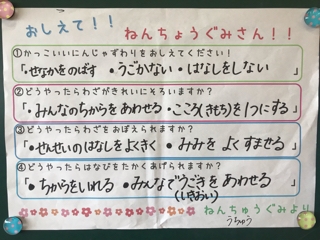 おしえて！！
ねんちょうぐみさん！！
①かっこいいにんじゃずわりをおしえてください！
「・せなかをのばす ・うごかない・はなしをしない 」
②どうやったらわざがきれいにそろいますか？
「・みんなのちからをあわせる・こころ(きもち)を1つにする 」
③どうやったらわざをおぼえられますか？
「・せんせいのはなしをよくきく ・みみを よくすませる 」
④どうやったらはなびをたかくあげられますか？
「・ちからをいれる ・みんなでうごきをあわせる 」
(いきおい)
ねんちゅうぐみより